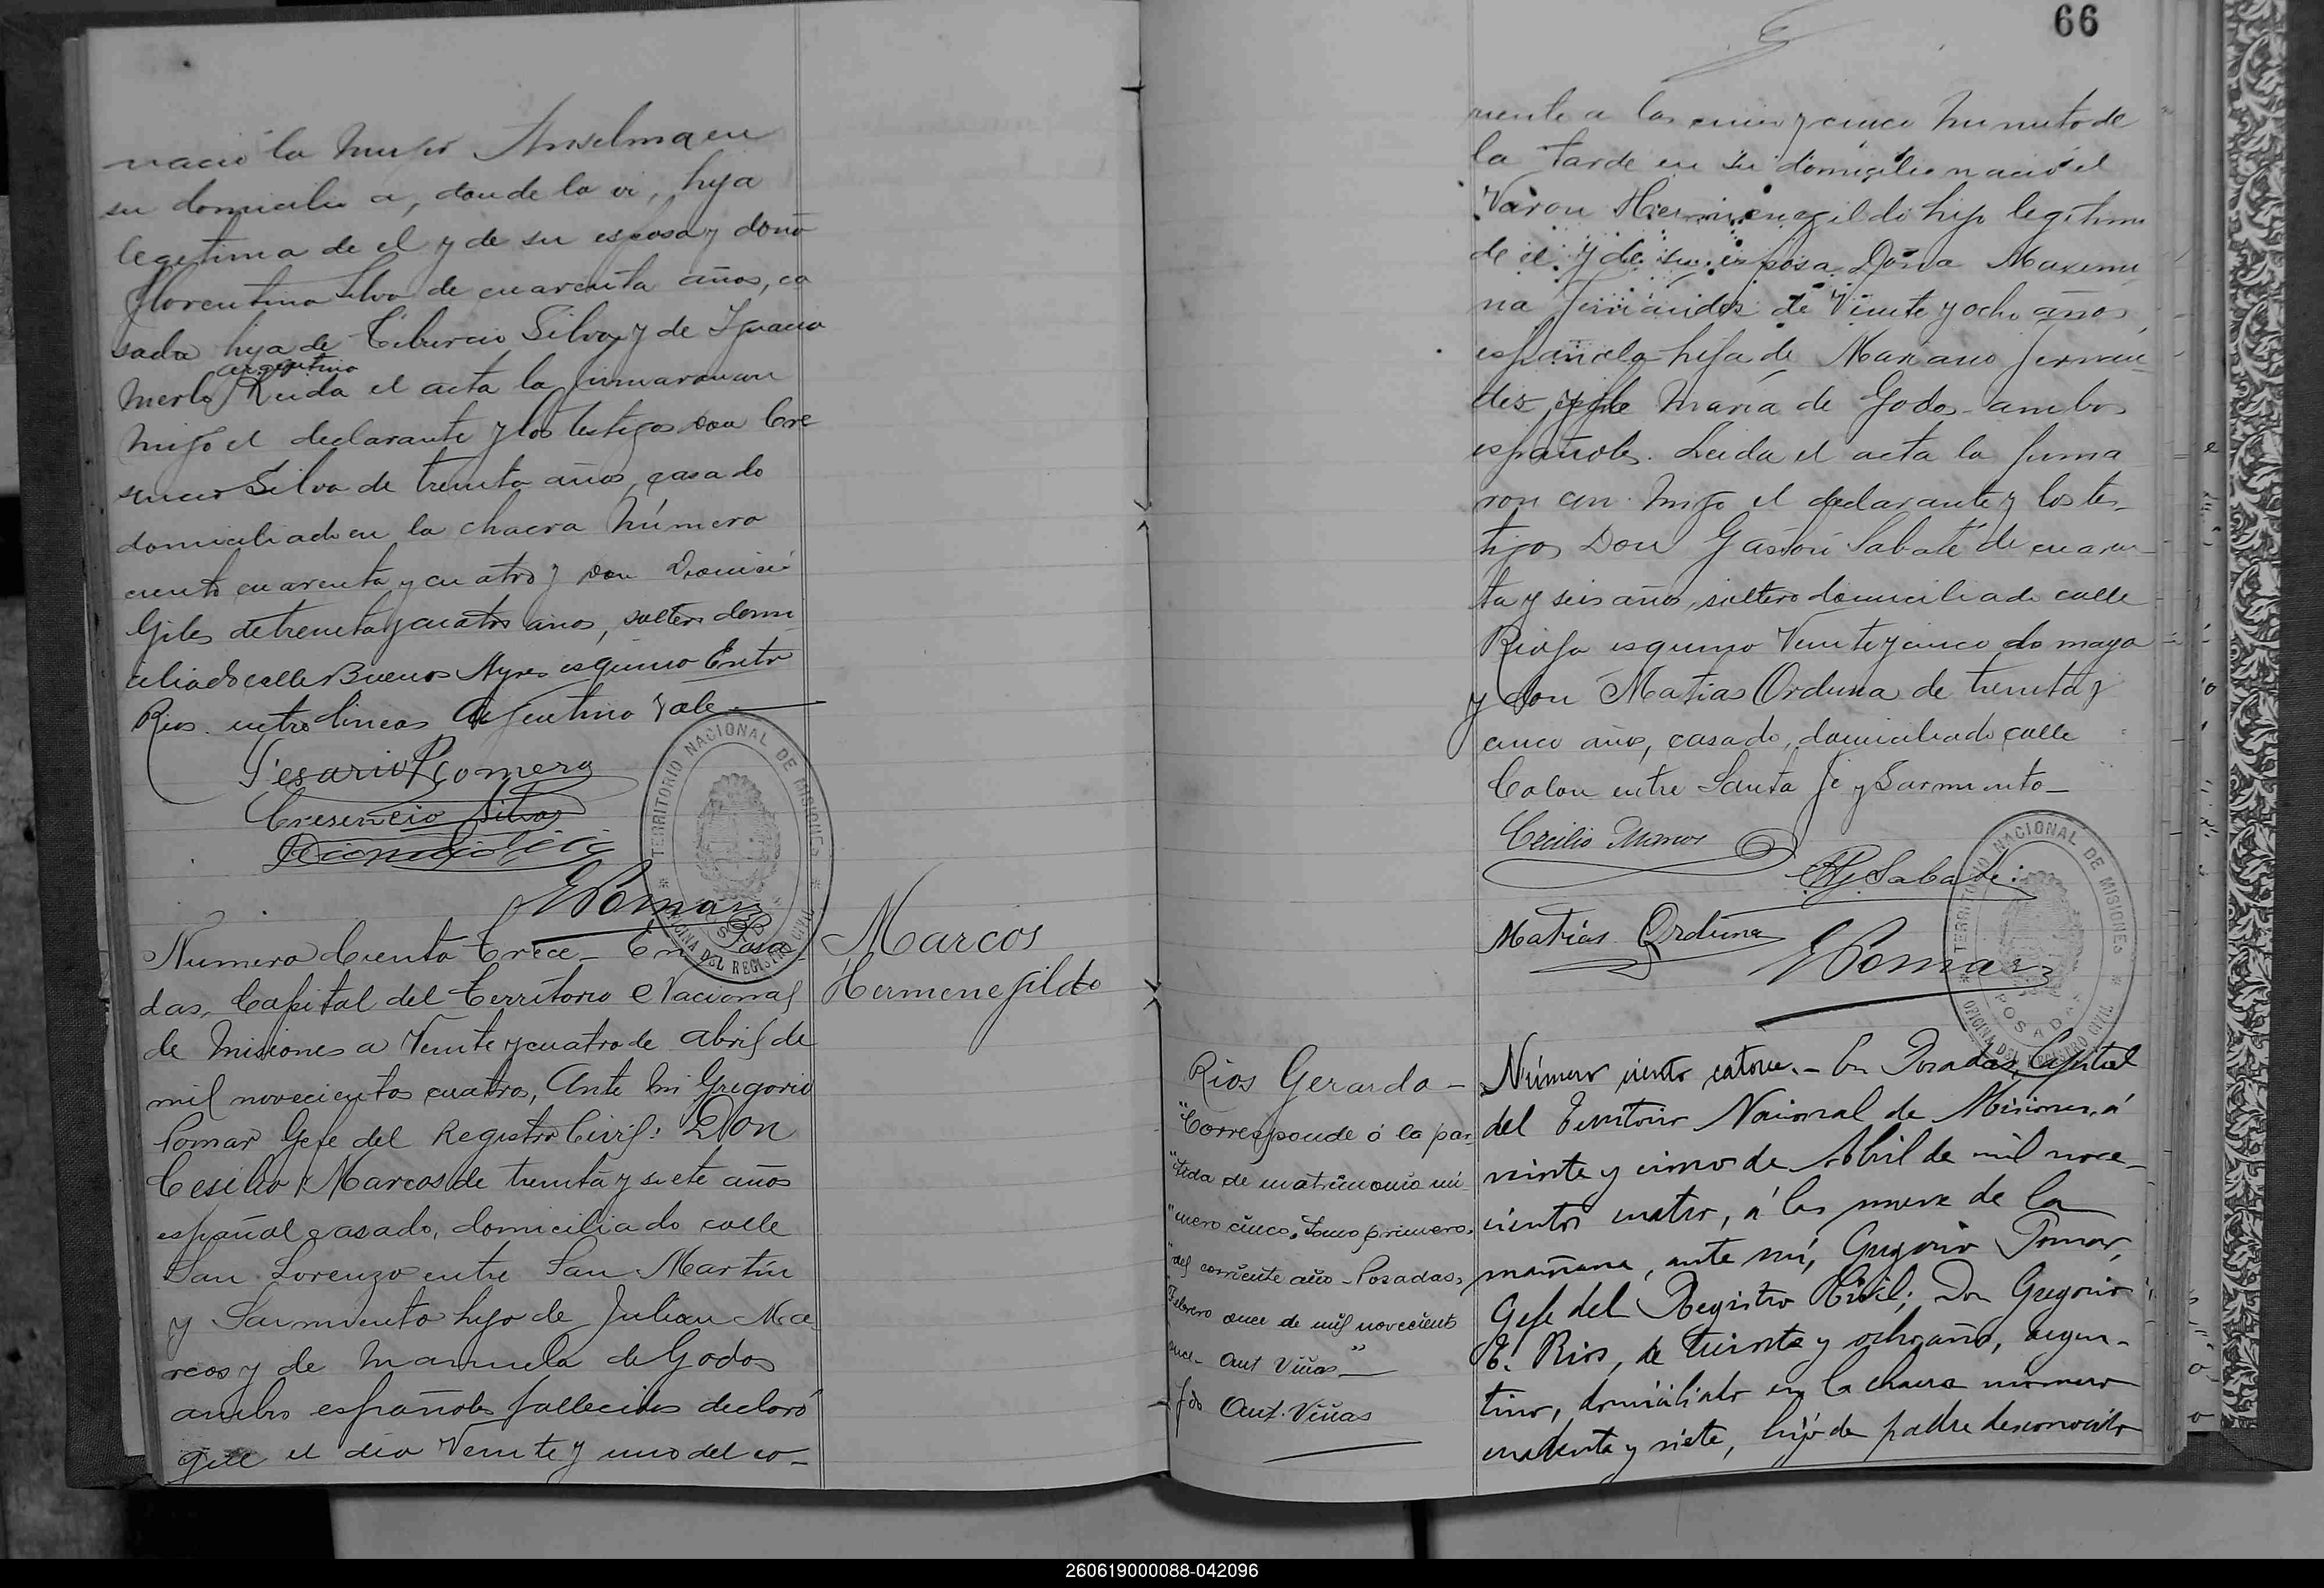 nació la mujer Anselma en
su domicilio a, donde la vi, hija
legitima de el y de su esposa y doña
Florentina Silva de cuarenta años, ca
sada hija de Tiburcio Silva y de Ignacia
argentino
Merlo Leida el acta la firmaron con
migo el declarante y los testigos Don Cre
sencio Silva de treinta años, casado
domiciliado en la chacra número
ciento cuarenta y cuatro y Don Dionisi
Giles de treinta y cuatro años, soltero domi
ciliado calle Buenos Ayres esquina Entre
Rios. entre lineas Argentino Vale
Cesario Romero
Cresencio Silva
GPomar
TERRITORIO NACIONAL DE MISIONES
OFICINA DEL REGISTRO CIVIL
Marcos
Hermenegildo
Numero Ciento Trece _ En Posa
das, Capital del Territorio Nacional
de Misiones a Veinte y cuatro de Abril de
mil novecientos cuatro, Ante mi Gregorio
Pomar Gefe del Registro Civil: Don
Cesilio Marcos de treinta y siete años
español casado, domiciliado calle
San Lorenzo entre San Martín
y Sarmiento hijo de Julian Ma
rcos y de Manuela de Godos
ambos españoles fallecidos declaró
que el día Veinte y uno del co_
66
rriente a las cinco y cinco minuto de
la tarde en su domicilio nació el
Varon Hermenegildo hijo legitimo
de el y de su esposa Doña Maximi
na Fernandez de Veinte y ocho años
española hija de Mariano Fernan
dez y de María de Godos ambos
españoles. Leida el acta la firma
ron con migo el declarante y los tes_
tigos Don Gastón Sabaté de cuaren_
ta y seis años, soltero domiciliado calle
Rioja esquina Veinte y cinco de mayo
y don Matias Orduna de treinta y
cinco años, casado, domiciliado calle
Colon entre Santa Fe y Sarmiento _
Cecilio Marcos
G. Sabaté
Matías Orduna
GPomar
TERRITORIO NACIONAL DE MISIONES
POSADAS
OFICINA DEL REGISTRO CIVIL
Rios Gerardo _
"Corresponde á la par_
"tida de matrimonio nú_
"mero cinco, Tomo primero,
"del corriente año _ Posadas,
Febrero once de mil novecients
once _ Ant Viñas" _
fdo Ant. Viñas
Número ciento catorce. _ En Posadas, Capital
del Territorio Nacional de Misiones, á
veinte y cinco de Abril de mil nove_
cientos cuatro, á las nueve de la
mañana, ante mí, Gregorio Pomar,
Gefe del Registro Civil; Don Gregorio
E. Rios, de treinta y ocho años, argen_
tino, domiciliado en la chacra número
cuarenta y siete, hijo de padre desconocido